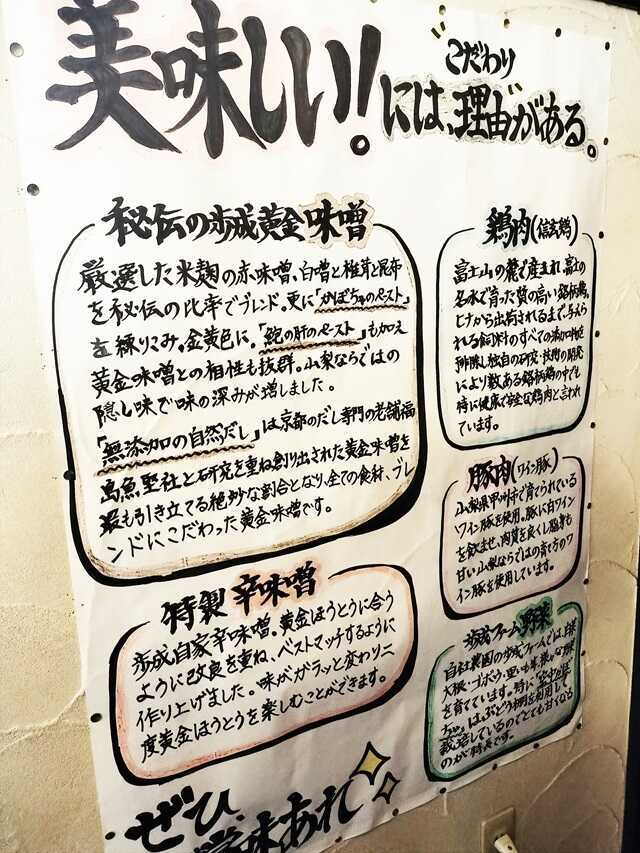 美味しい!
こだわり
には、理由がある。
秘伝の歩成黄金味噌
厳選した米麹の赤味噌、白噌と椎茸と昆布
を秘伝の比率でブレンド。更に「かぼちゃのペースト」
を練りこみ、金黄色に。「鮑の肝のペースト」も加え
黄金味噌との相性も抜群。山梨ならではの
隠し味で味の深みが増しました。
「無添加の自然だし」は京都のだし専門の老舗福
島魚堅社と研究を重ね創り出された黄金味噌を
最も引き立てる絶妙な割合となり、全ての食材、ブレ
ンドにこだわった黄金味噌です。
特製 辛味噌
歩成自家辛味噌。黄金ほうとうに合う
ように改良を重ね、ベストマッチするように
作り上げました。味がガラッと変わり二
度黄金ほうとうを楽しむことができます。
鶏肉(信玄鶏)
富士山の麓で産まれ、富士の
名水で育った質の高い銘柄鶏。
ヒナから出荷されるまで、与えら
れる飼料のすべての添加物を
排除し独自の研究・技術の開発
により数ある銘柄鶏の中でも
特に健康で安全な鶏肉と言われ
ています。
豚肉(ワイン豚)
山梨県甲州市で育てられている
ワイン豚を使用。豚に白ワイン
を飲ませ、肉質を良くし脂身も
甘い山梨ならではの育て方のワ
イン豚を使用しています。
歩成ファーム野菜
自社農園の歩成ファームでは、白菜
大根・ゴボウ・里いも等、様々な野菜
を育てています。特に
ちゃ」はぶどう棚を利用して
栽培しているのでとても甘くなる
のが特長です。
ぜひ、
味あれ